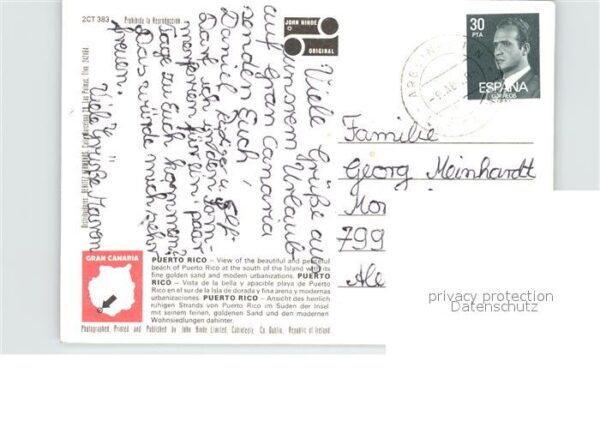 2CT 383
Prohibida la Reproducción.
JOHN HINDE
ORIGINAL
30
PTA
ESPAÑA
CORREOS
Viele Grüße aus
unserem Urlaub
auf Gran Canaria
senden Euch
Daniel
Darf ich in den
für ein paar
Tage zu Euch kommen?
Das würde mich sehr
freuen.
Viele Grüße
Familie
Georg Meinhardt
799
GRAN CANARIA
PUERTO RICO – View of the beautiful and peaceful
beach of Puerto Rico at the south of the Island with its
fine golden sand and modern urbanizations. PUERTO
RICO – Vista de la bella y apacible playa de Puerto
Rico en el sur de la Isla de dorada y fina arena y modernas
urbanizaciones. PUERTO RICO – Ansicht des herrlich
ruhigen Strands von Puerto Rico im Süden der Insel
mit seinem feinen, goldenen Sand und den modernen
Wohnsiedlungen dahinter.
Photographed, Printed and Published by John Hinde Limited, Cabinteely, Co. Dublin, Republic of Ireland
privacy protection
Datenschutz